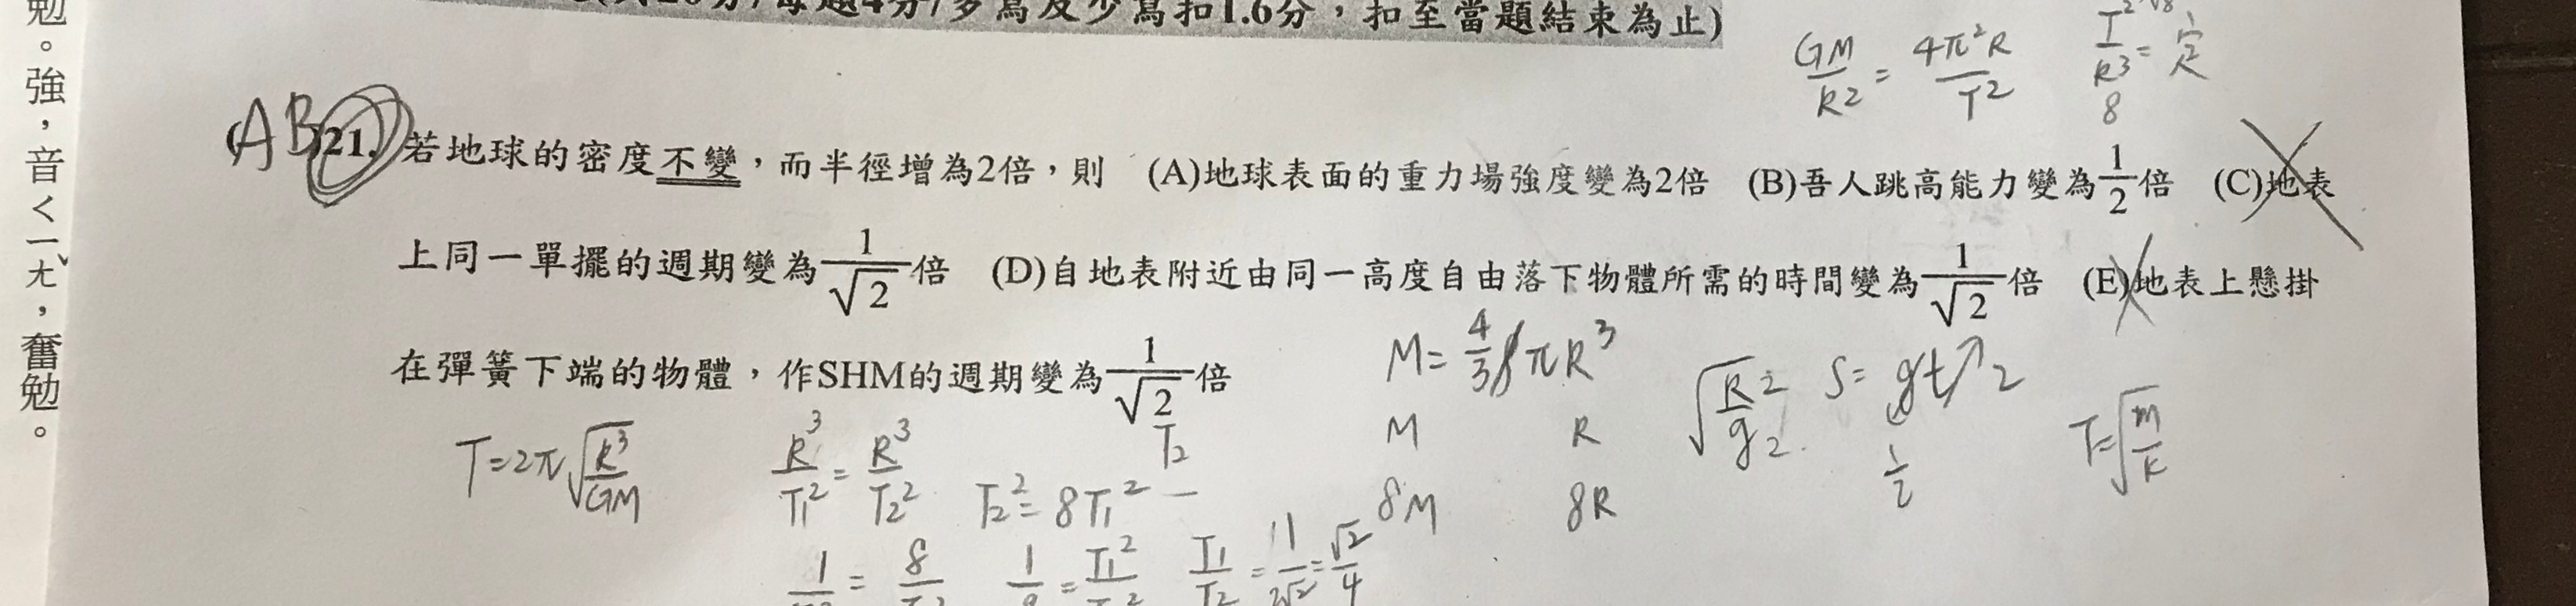 勉。強，音ㄑㄧㄤˇ，奮勉。
分/每題4分/多寫及少寫扣1.6分，扣至當題結束為止)
GM/R2 = 4π²R/T²
R3 = 定
8
(AB)21. 若地球的密度不變，而半徑增為2倍，則 (A)地球表面的重力場強度變為2倍 (B)吾人跳高能力變為1/2倍 (C)地表
上同一單擺的週期變為1/√2倍 (D)自地表附近由同一高度自由落下物體所需的時間變為1/√2倍 (E)地表上懸掛
在彈簧下端的物體，作SHM的週期變為1/√2倍
M = 4/3 πR³
M R
8M 8R
√(R2/g2)
S = gt↗2
1/2
T=√(m/k)
T=2π√(R³/GM)
R³/T1² = R³/T2²
T2² = 8T1²
T2
T1/T2 = 1/2√2 = √2/4